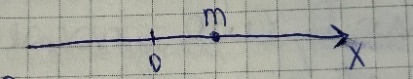 m
0 X